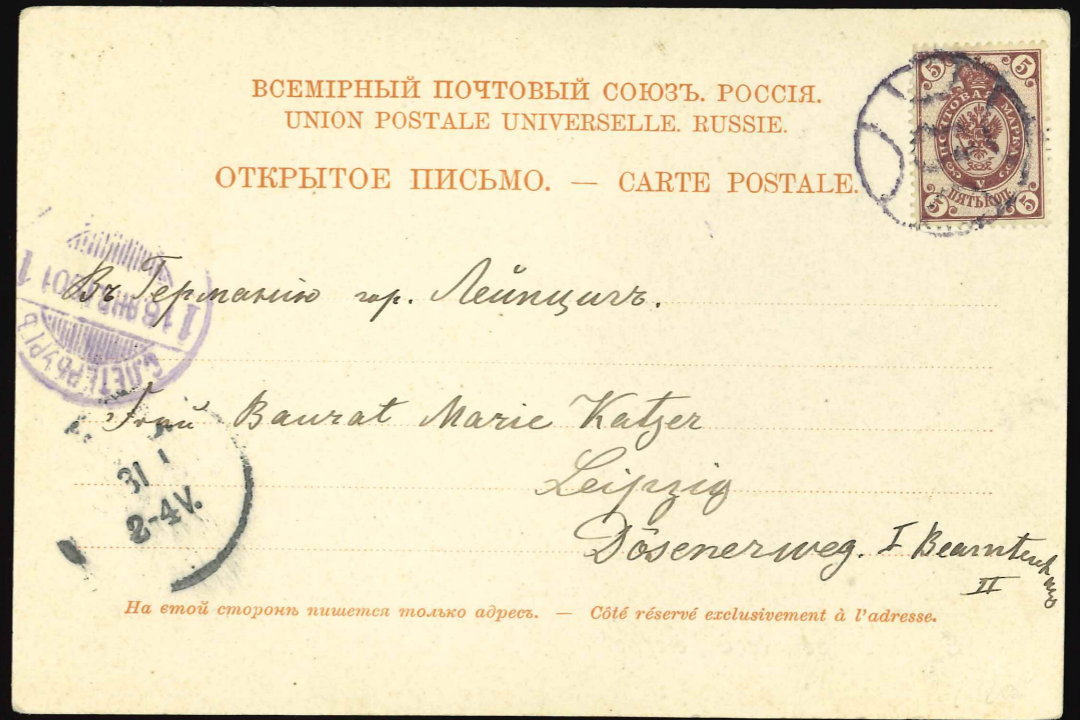 ВСЕМІРНЫЙ ПОЧТОВЫЙ СОЮЗЪ. РОССІЯ.
UNION POSTALE UNIVERSELLE. RUSSIE.
ОТКРЫТОЕ ПИСЬМО. — CARTE POSTALE.
5 5
ПОЧТОВАЯ МАРКА
V
ПЯТЬ КОП.
5 5
Въ Германію гор. Лейпцигъ.
1 1
1901
С.ПЕТЕРБУРГЪ
Baurat Marie Katzer
Leipzig
Dösenerweg. I Beamtenhaus
II
31 1
2-4V.
На етой сторонѣ пишется только адресъ. — Côté réservé exclusivement à l'adresse.